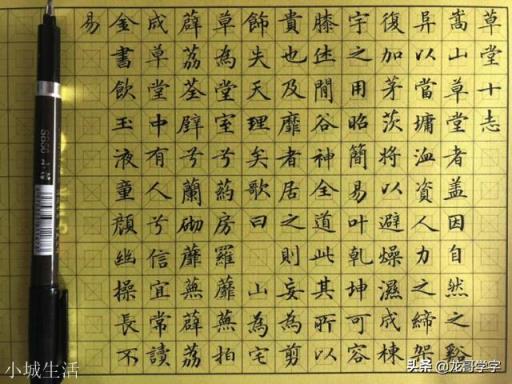 草堂十志
嵩山草堂者盖因自然之谿
异以當墉洫資人力之締架
復加茅茨將以避燥濕成棟
宇之用昭簡易叶乾坤可容
膝閒谷神全道此其所以
貴也及靡者居之則妄為剪
飾失天理矣歌曰 山為宅
草為堂室兮葯房羅蘼蕪拍
薜荔荃壁兮蘭砌蘼蕪薜荔
成草堂中有人兮信宜常讀
金書飲玉液童顏幽操長不
易
小城生活
头条 @龙哥学字